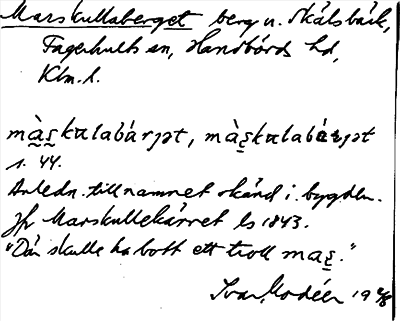 Marskullaberget berg n. Skälsbäck,
Fagerhults sn, Handbörds hd,
Klm. l.
màs̰kulabárjət, màs̰kulabárjət
s. 44.
Anledn. till namnet okänd i bygden.
Jfr Marskullekärret ls 1843.
"Där skulle ha bott ett troll mas̰."
Ivar Modéer 19